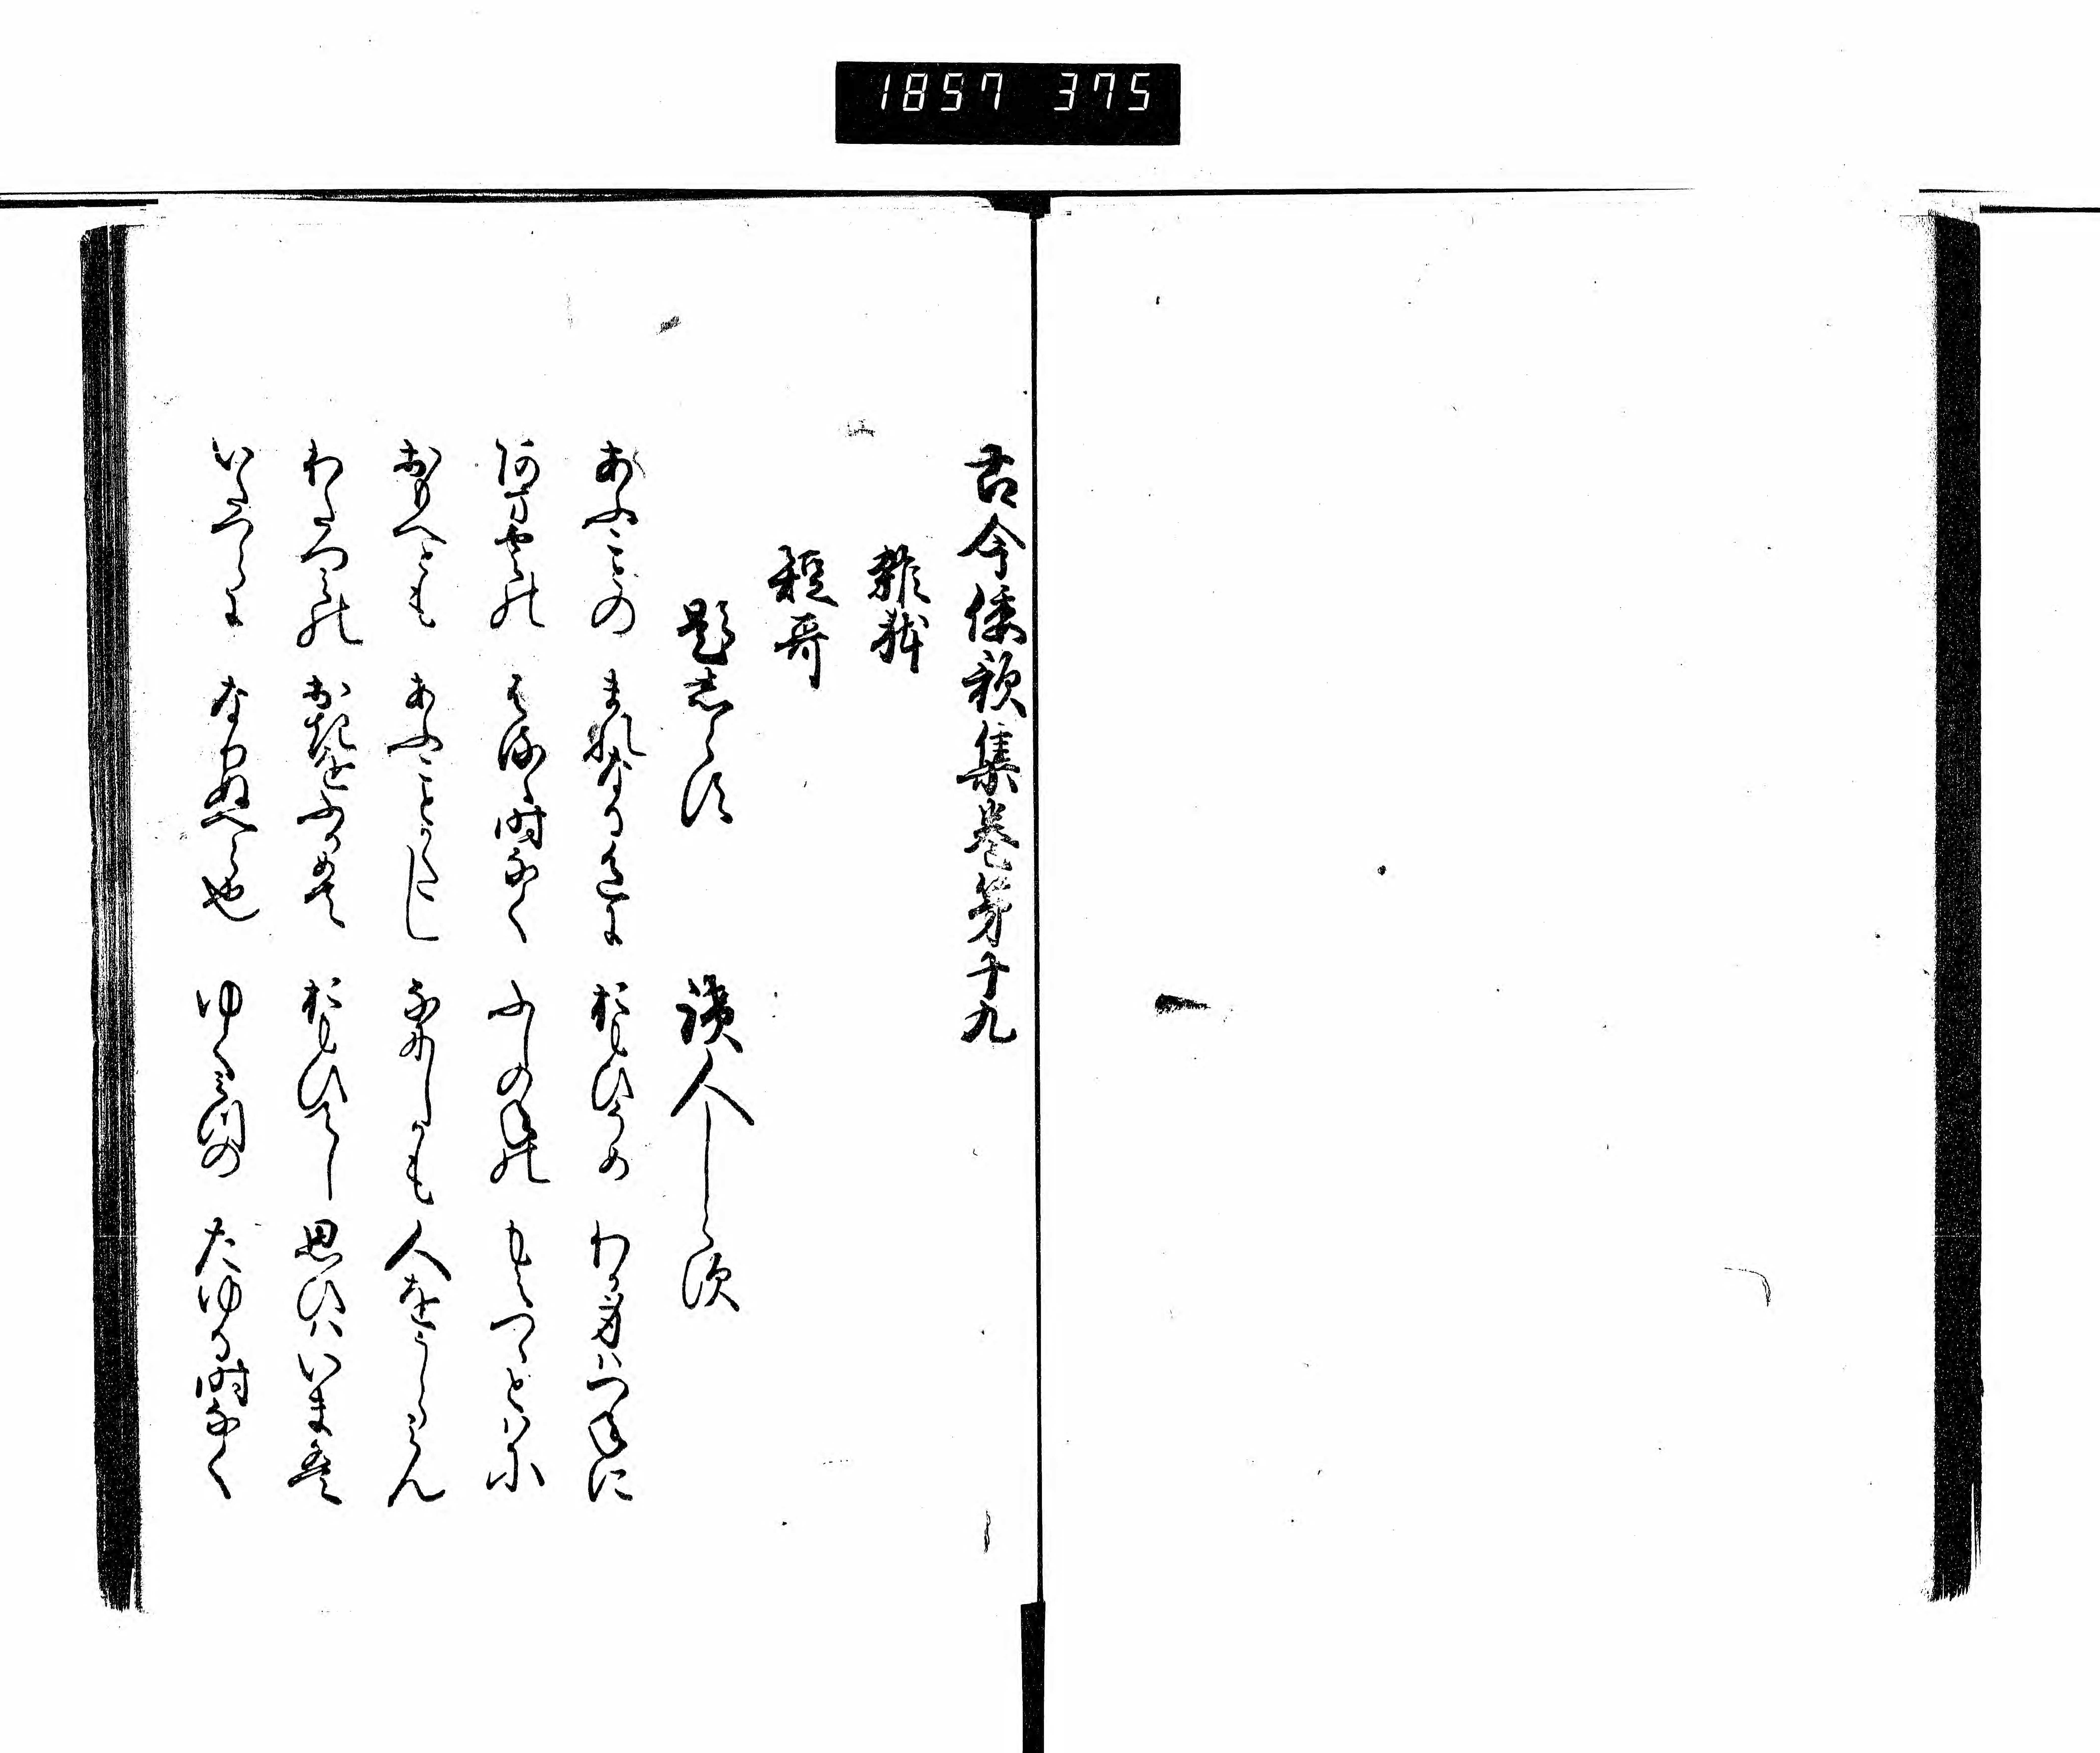 1857 375
古今倭歌集巻第十九
雑躰
短哥
題志らす
読人しらす
あふことの まれなるいろに おもひそめ わか身はつねに
あまくもの はるゝ時なく ふしのねの もえつゝとはに
おもへとも あふことかたし なにしかも 人をうらみん
わたつみの おきをふかめて おもひてし 思ひはいまは
いたつらに なりぬへら也 ゆく水の たゆる時なく